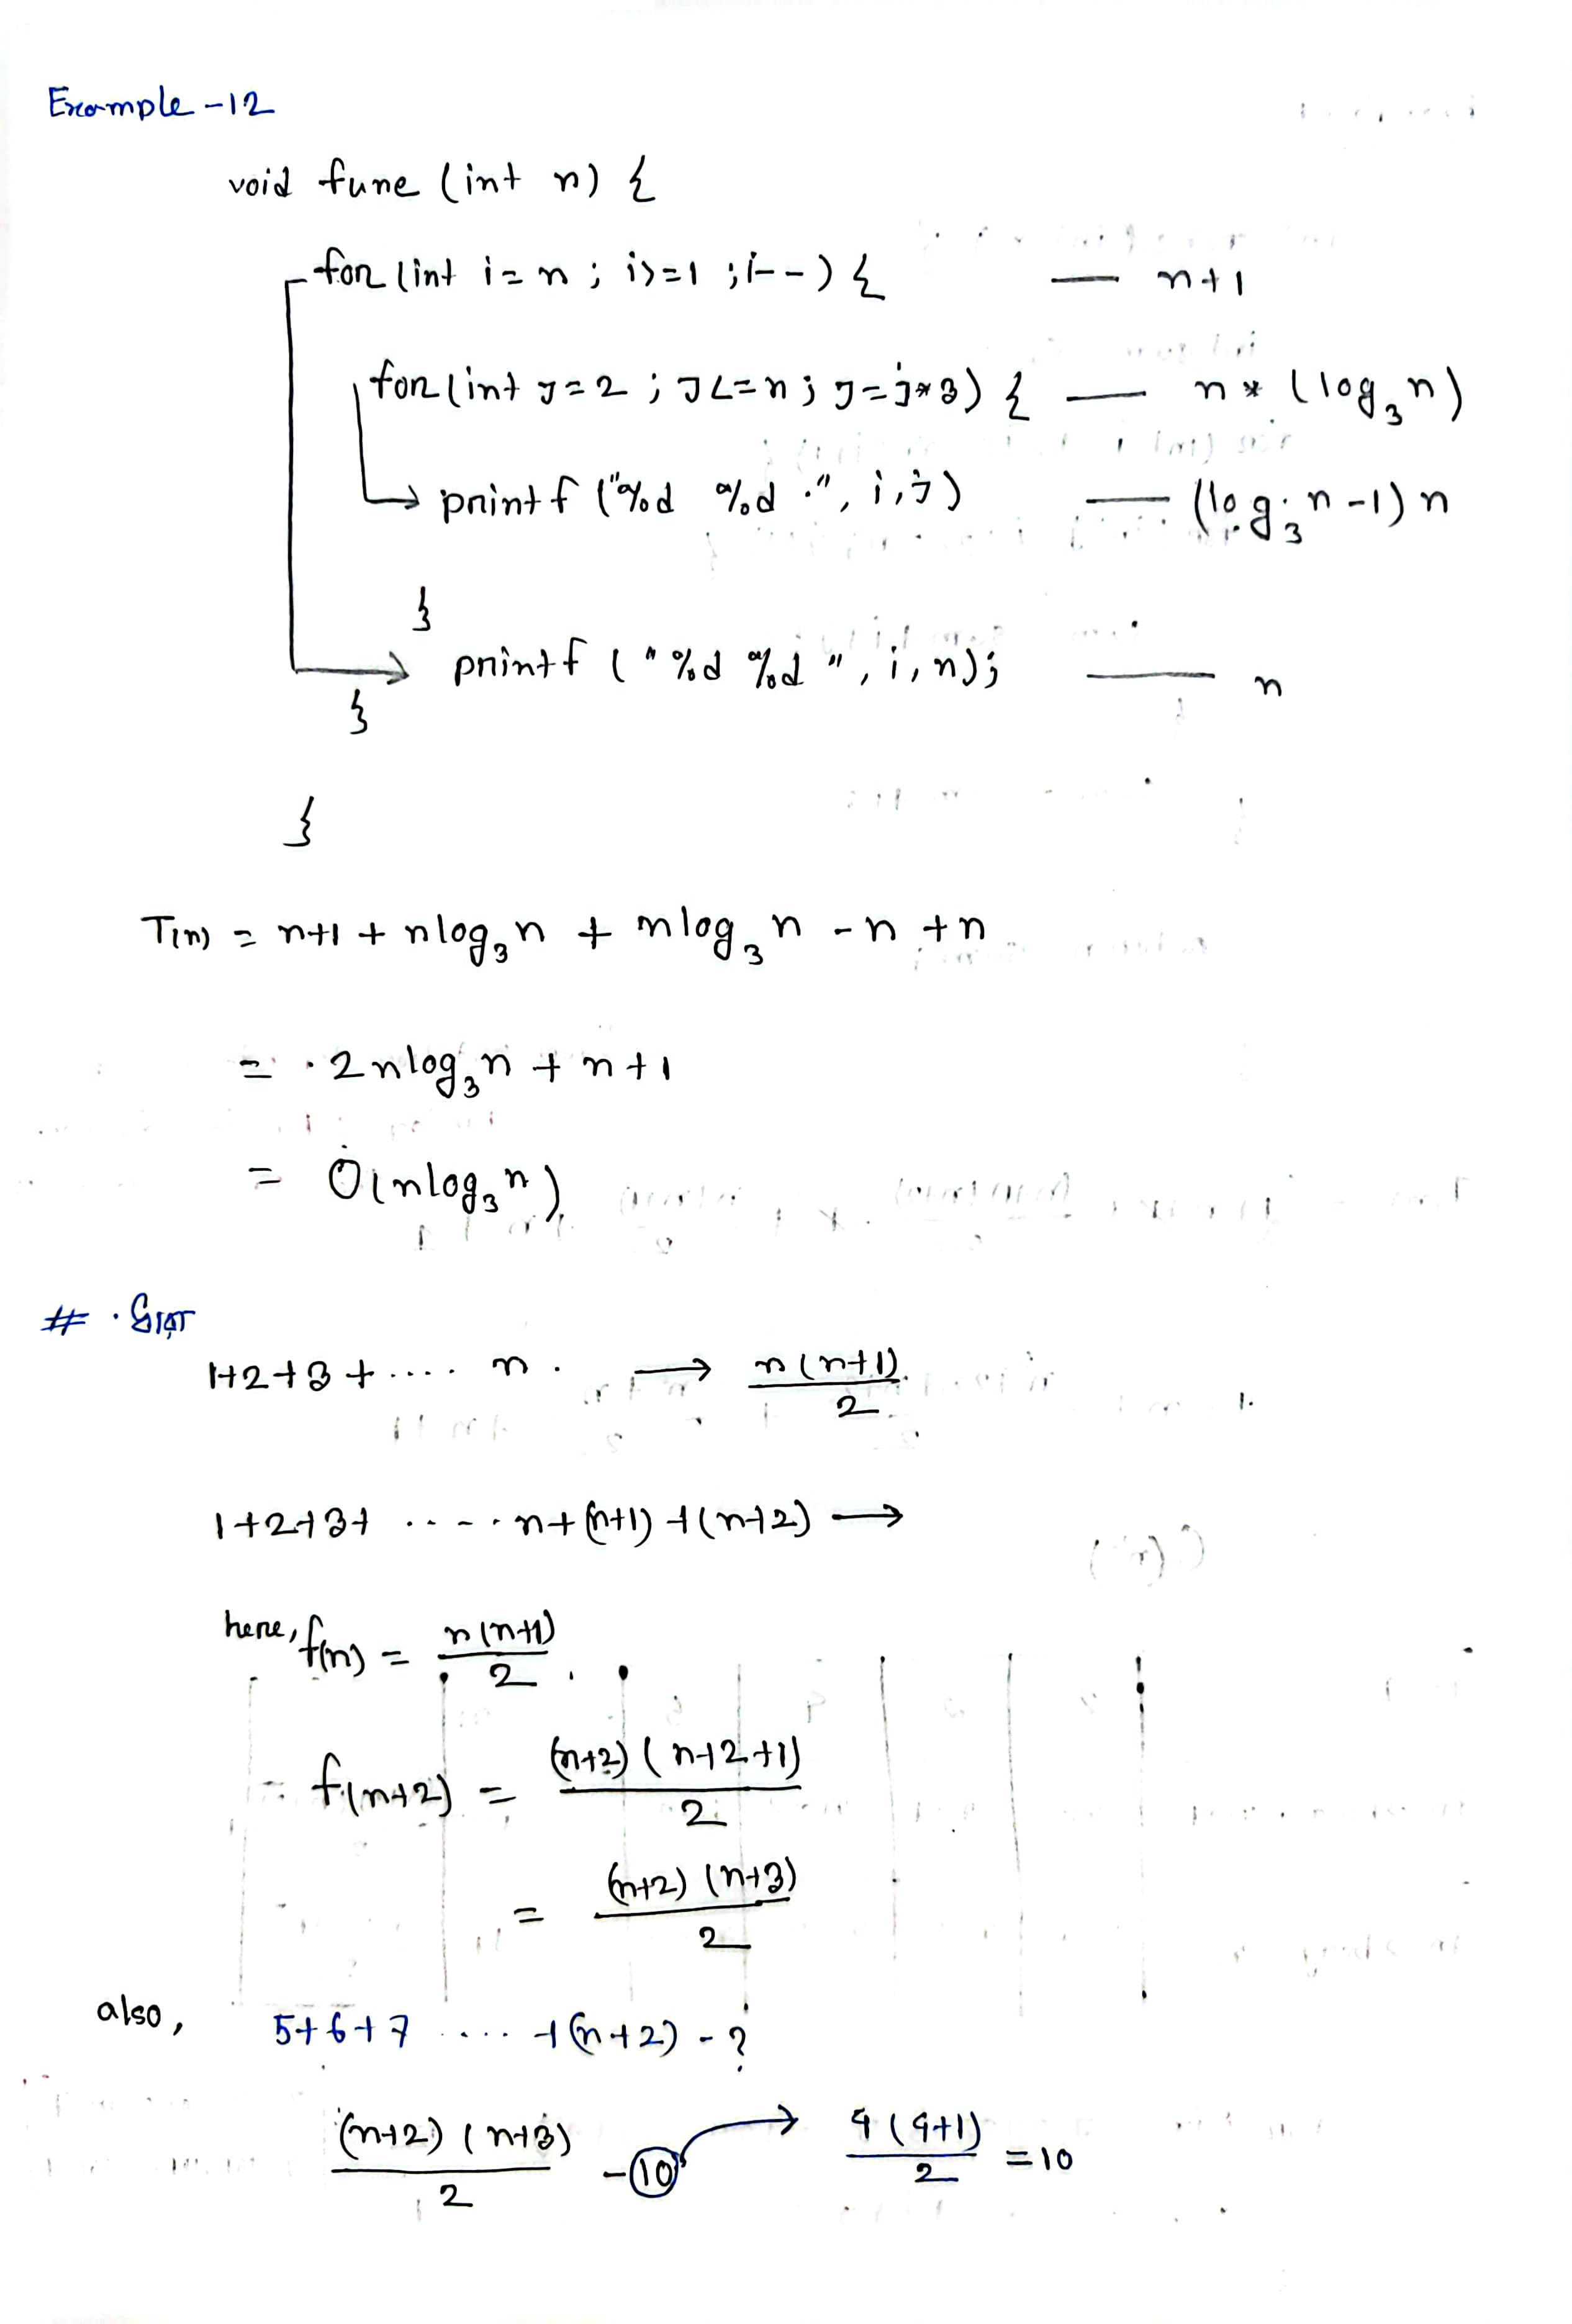 Example -12
void func (int n) {
for (int i = n ; i>=1 ; i--) { — n+1
for (int j=2 ; j<=n ; j=j*3) { — n * (log₃n)
printf ("%d %d ", i,j) — (log₃n -1) n
}
printf ( "%d %d ", i, n); — n
}
}
T(n) = n+1 + nlog₃n + nlog₃n -n +n
= 2nlog₃n + n+1
= O(nlog₃n)
# ধারা
1+2+3+ .... n → n(n+1)/2
1+2+3+ ..... n+(n+1)+(n+2) →
here, f(n) = n(n+1)/2
f(n+2) = (n+2)(n+2+1)/2
= (n+2)(n+3)/2
also, 5+6+7 .... +(n+2) - ?
(n+2)(n+3)/2 -10 → 4(4+1)/2 = 10